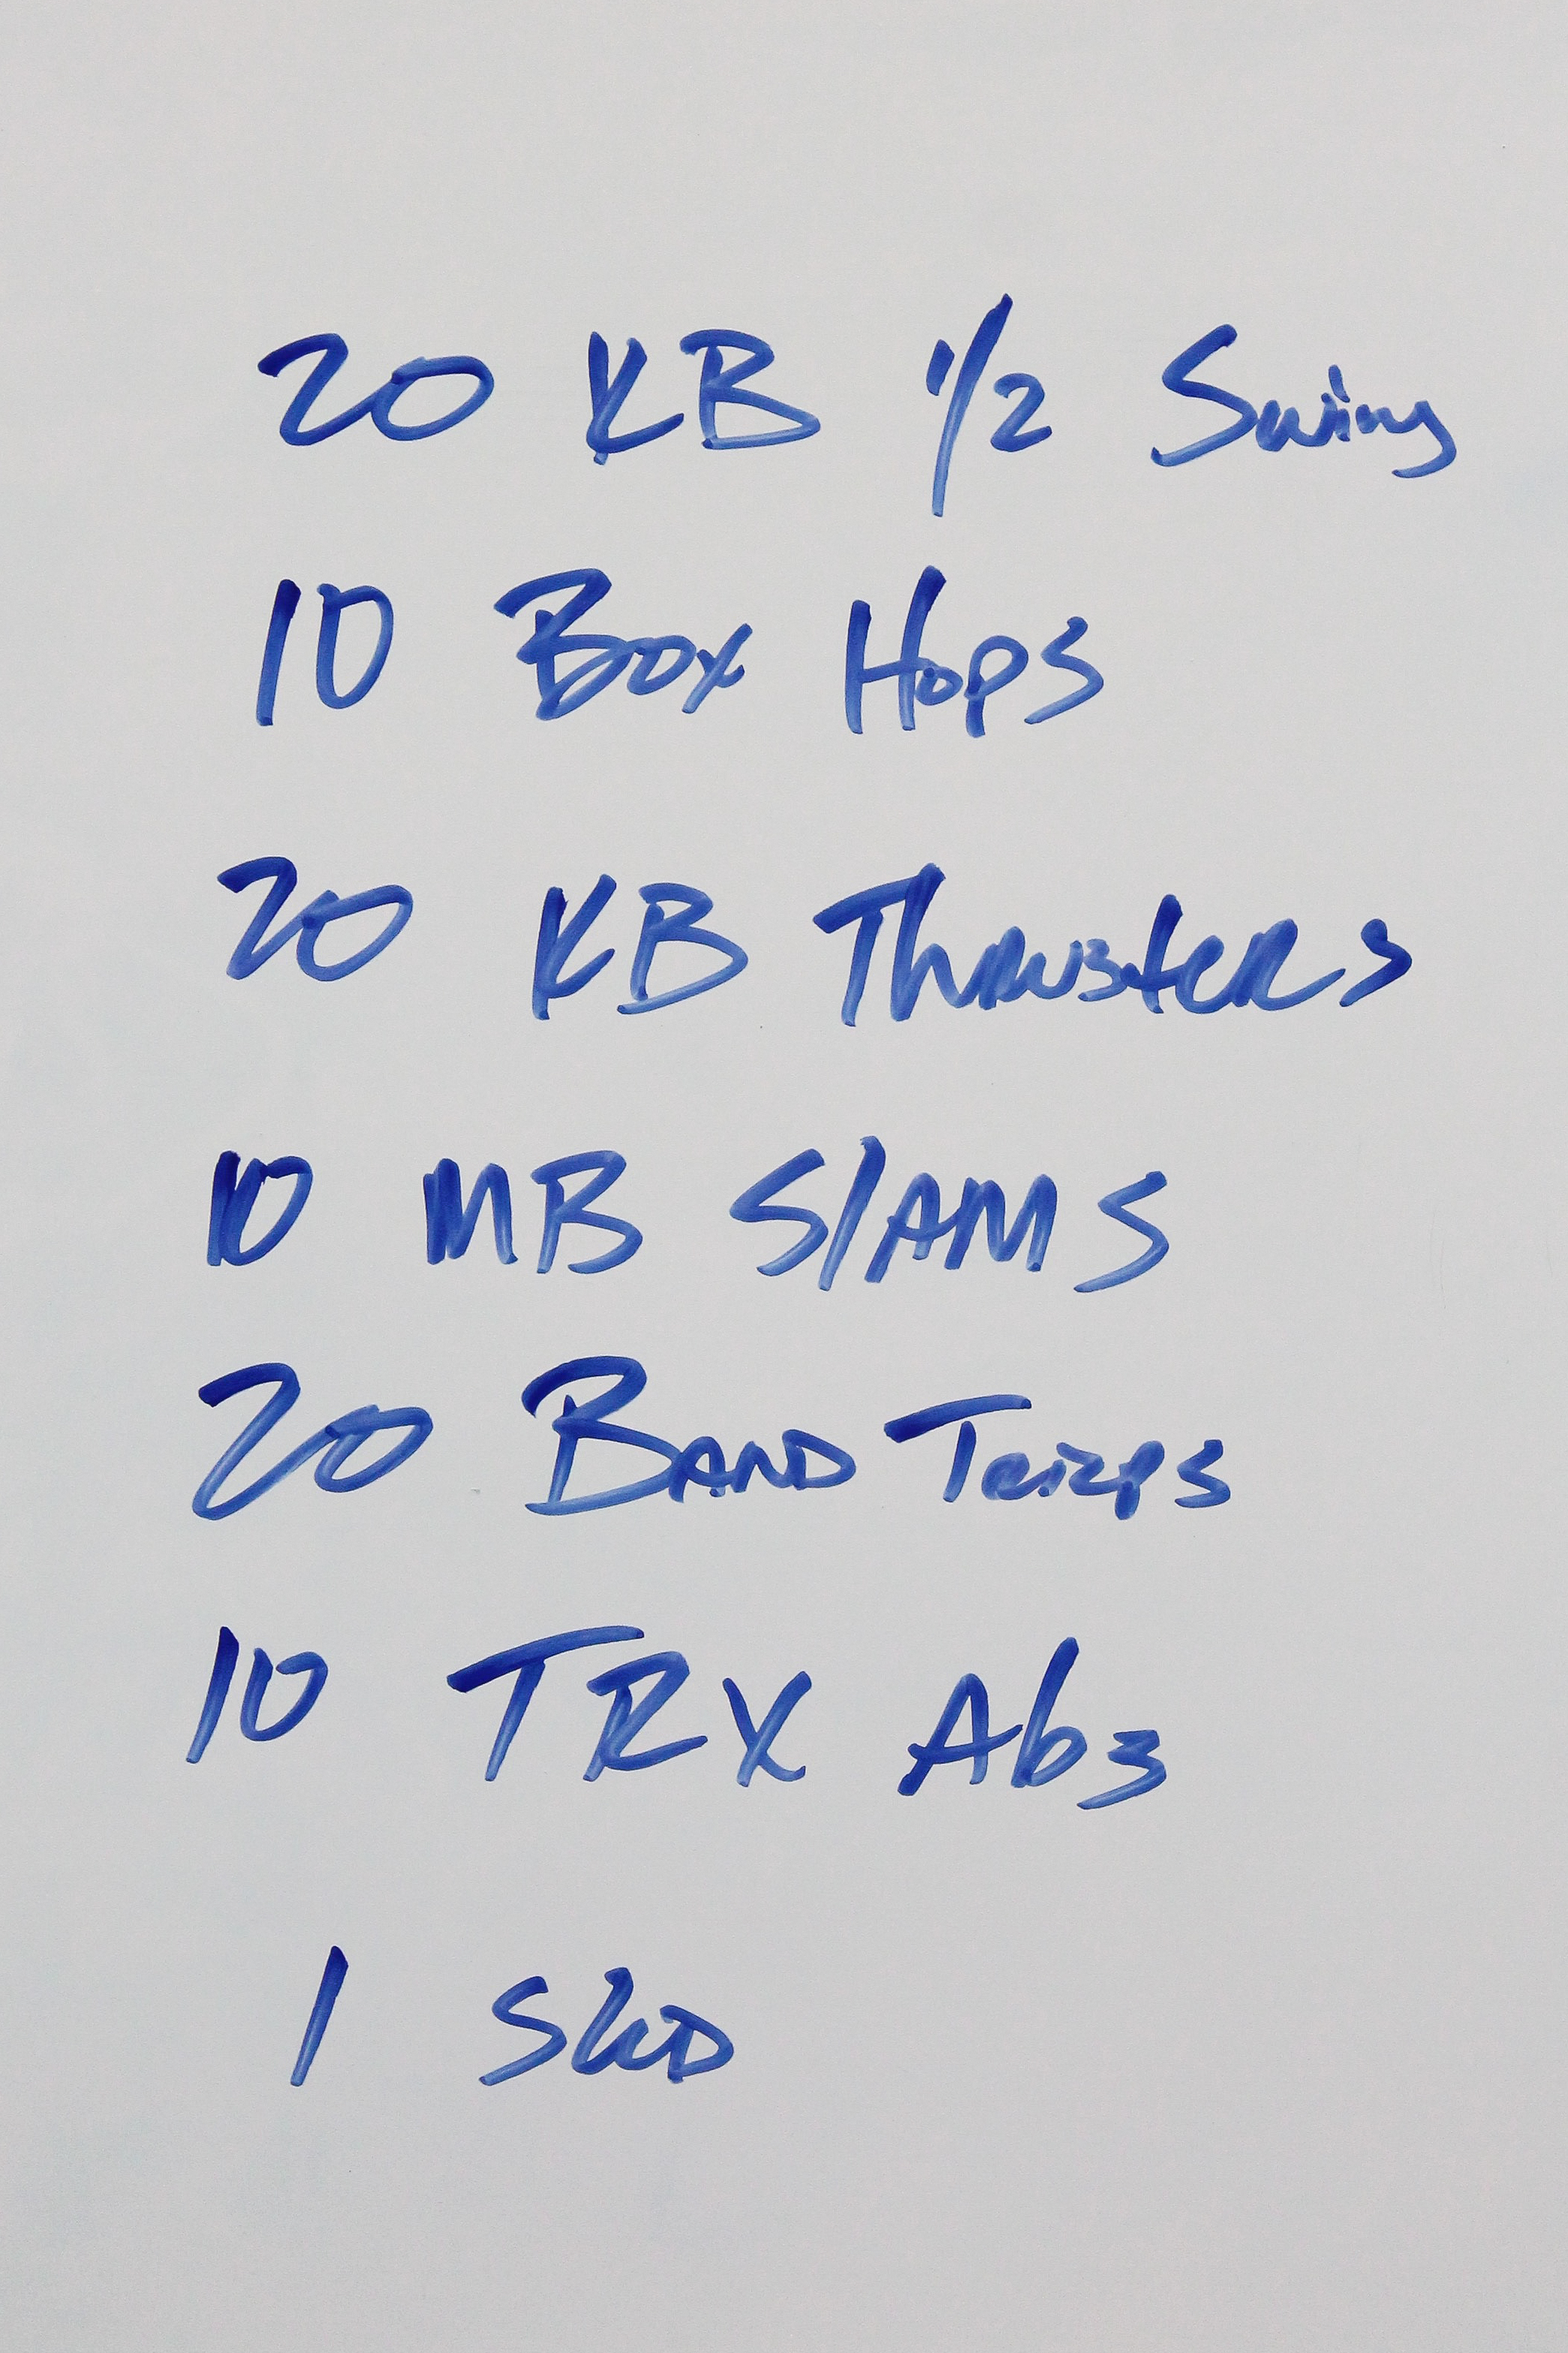 20 KB 1/2 Swing
10 Box Hops
20 KB Thrusters
10 MB SlAMS
20 BAND Triceps
10 TRX Abs
1 SleD